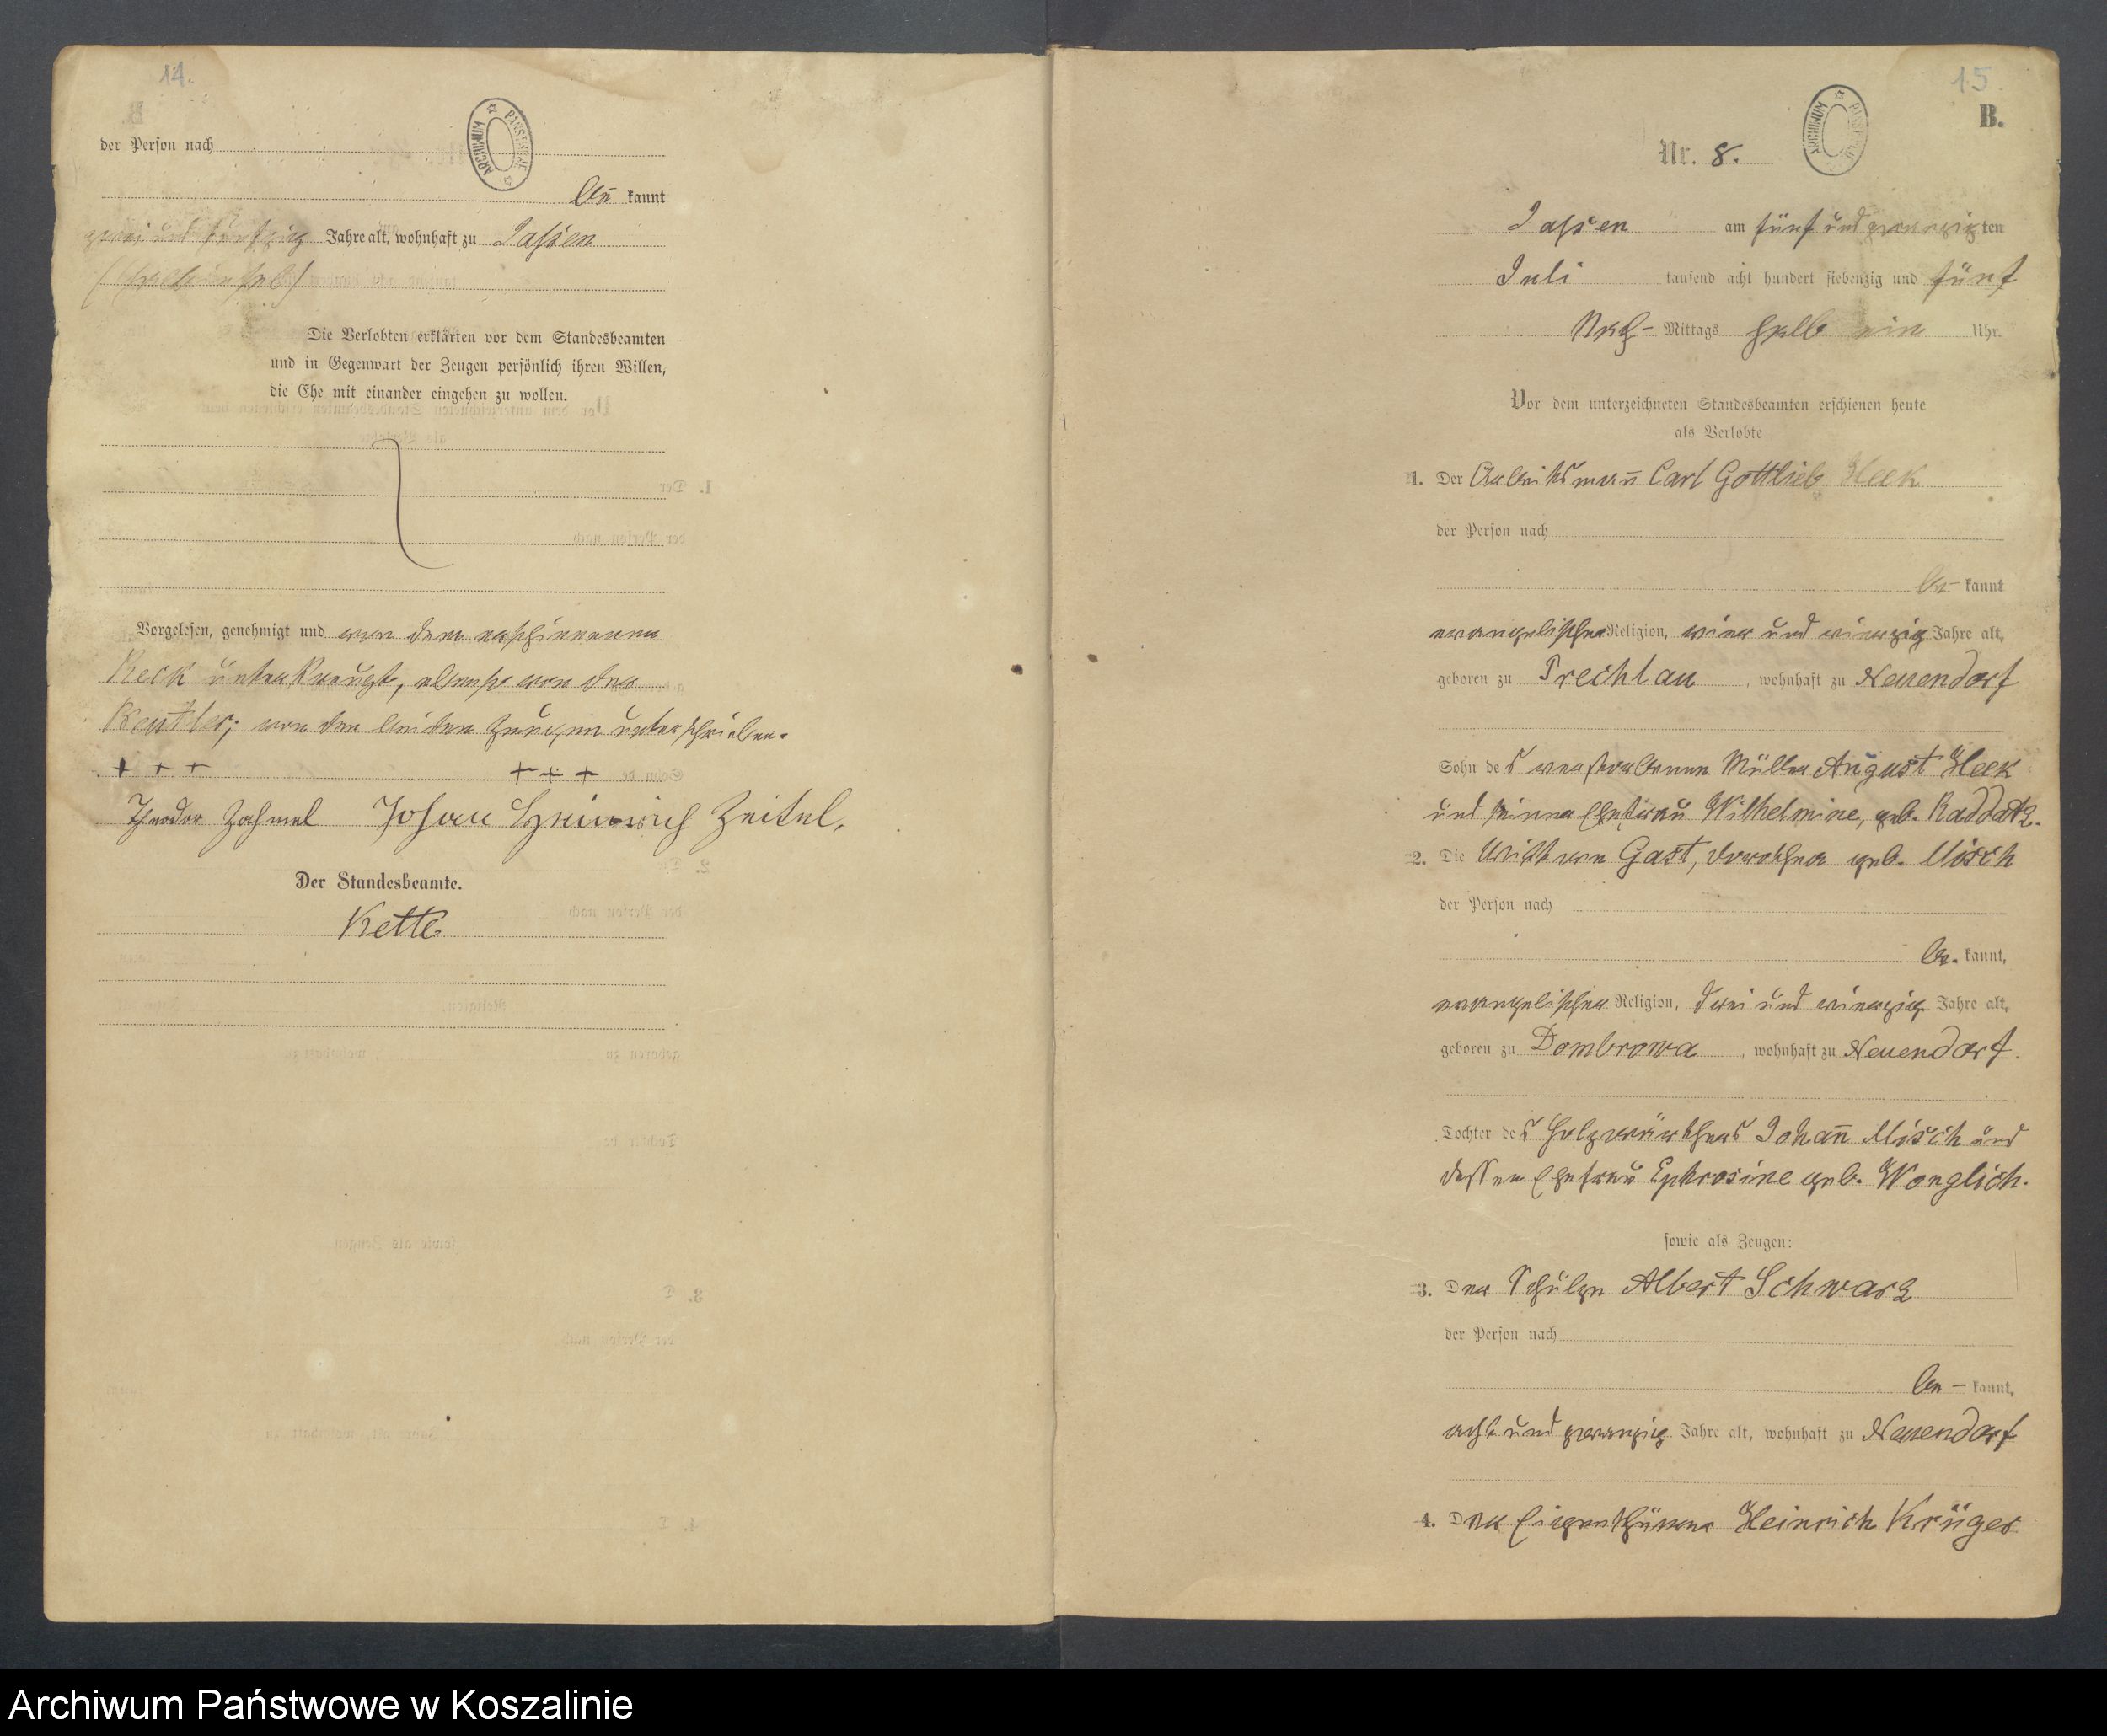 14.
ARCHIWUM PAŃSTWOWE
der Person nach
be kannt
zwei und fünfzig Jahre alt, wohnhaft zu Jassen
Die Verlobten erklärten vor dem Standesbeamten
und in Gegenwart der Zeugen persönlich ihren Willen,
die Ehe mit einander eingehen zu wollen.
Vorgelesen, genehmigt und von dem erschienenen
unterkreuzt, ebenso von der
von den beiden Zeugen unterschrieben.
+ + + + + +
Theodor Johann Heinrich Zeitel.
Der Standesbeamte.
Kette
15.
B.
ARCHIWUM PAŃSTWOWE
Nr. 8.
Jassen am fünf und zwanzigten
Juli tausend acht hundert siebenzig und fünf
Nach- Mittags halb ein Uhr.
Vor dem unterzeichneten Standesbeamten erschienen heute
als Verlobte
1. Der Arbeitsmann Carl Gottlieb Heek
der Person nach
be- kannt
evangelischer Religion, vier und vierzig Jahre alt,
geboren zu Prechlau, wohnhaft zu Neuendorf
Sohn des verstorbenen Müller August Heek
und seiner Ehefrau Wilhelmine, geb. Raddatz.
2. Die Wittwe Gast, Dorothea geb. Misch
der Person nach
be- kannt,
evangelischer Religion, drei und vierzig Jahre alt,
geboren zu Dombrowa, wohnhaft zu Neuendorf.
Tochter des Holzwärthers Johann Misch und
dessen Ehefrau Ephrosine geb. Wonglich.
sowie als Zeugen:
3. Der Schulze Albert Schwarz
der Person nach
be- kannt,
acht und zwanzig Jahre alt, wohnhaft zu Neuendorf
4. Der Eigenthümer Heinrich Krüger
Archiwum Państwowe w Koszalinie